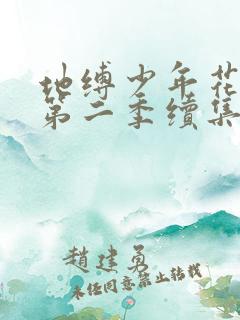 地缚少年花
第二季续集
趙建勇
未经同意禁止转载